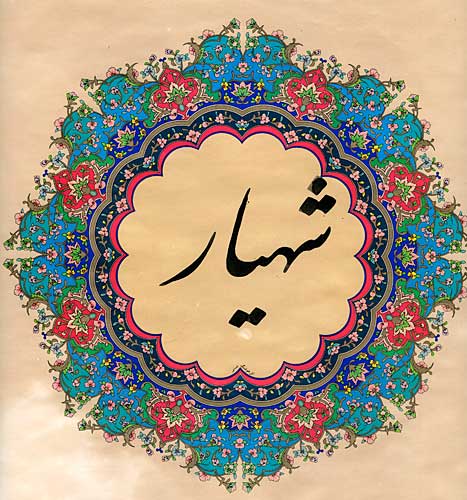 شهیار